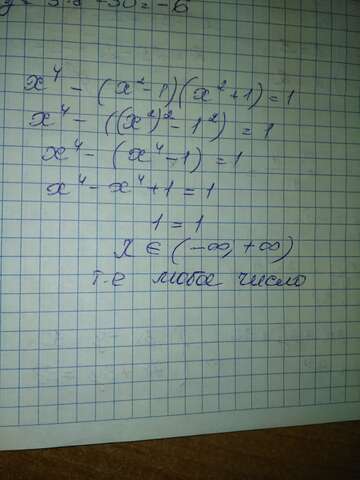 x⁴ - (x² - 1)(x² + 1) = 1
x⁴ - ((x²)² - 1²) = 1
x⁴ - (x⁴ - 1) = 1
x⁴ - x⁴ + 1 = 1
1 = 1
x ∈ (-∞, +∞)
т.е любое число